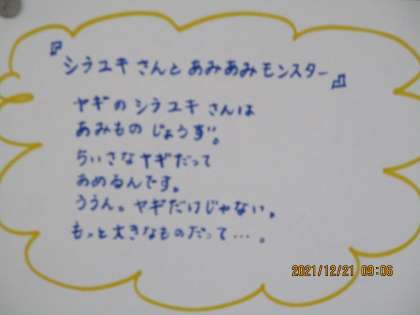 『シラユキさんとあみあみモンスター』
ヤギのシラユキさんは
あみものじょうず。
ちいさなヤギだって
あめるんです。
ううん。ヤギだけじゃない。
もっと大きなものだって…。
2021/12/21 09:06